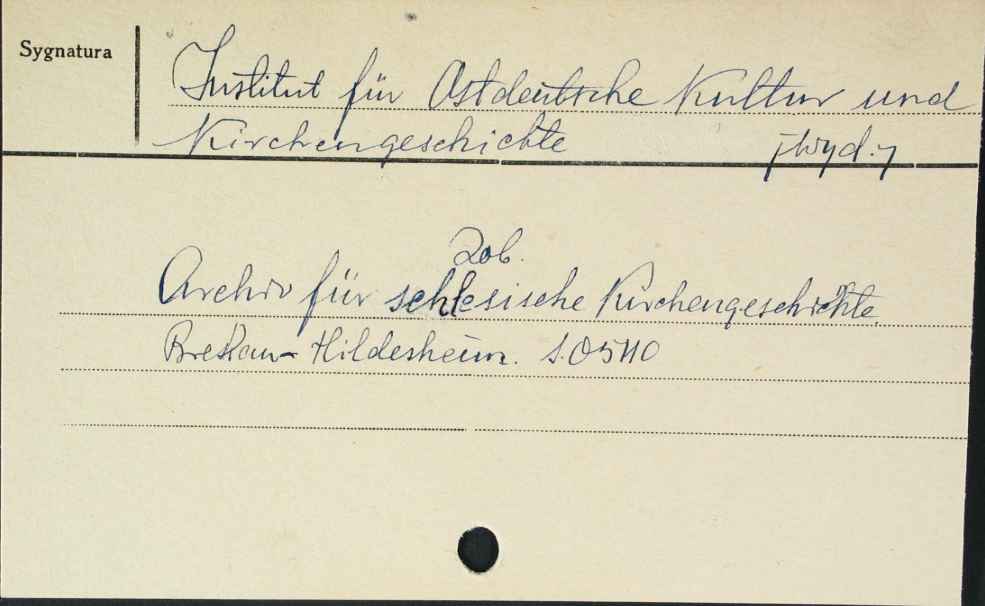 Sygnatura
Institut für Ostdeutsche Kultur und
Kirchengeschichte [wyd.]
Zob.
Archiv für schlesische Kirchengeschichte
Breslau-Hildesheim. S.05110